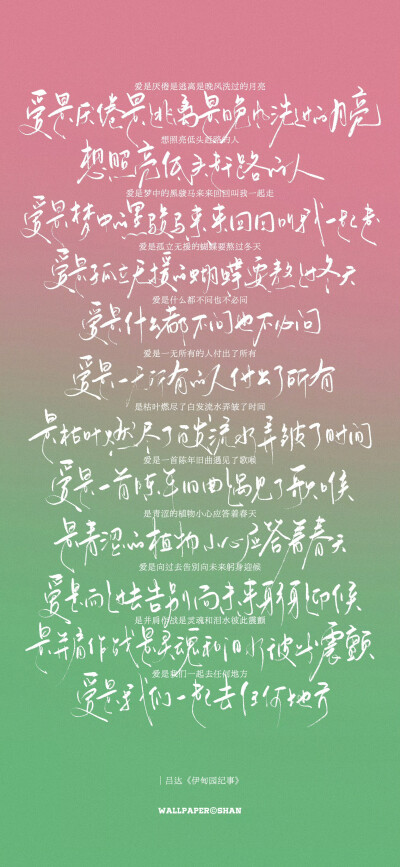 爱是厌倦是逃离是晚风洗过的月亮
爱是厌倦是逃离是晚风洗过的月亮
想照亮低头赶路的人
想照亮低头赶路的人
爱是梦中的黑骏马来来回回叫我一起走
爱是梦中的黑骏马来来回回叫我一起走
爱是孤立无援的蝴蝶要熬过冬天
爱是孤立无援的蝴蝶要熬过冬天
爱是什么都不问也不必问
爱是什么都不问也不必问
爱是一无所有的人付出了所有
爱是一无所有的人付出了所有
是枯叶燃尽了白发流水弄皱了时间
是枯叶燃尽了白发流水弄皱了时间
爱是一首陈年旧曲遇见了歌喉
爱是一首陈年旧曲遇见了歌喉
是青涩的植物小心应答着春天
是青涩的植物小心应答着春天
爱是向过去告别向未来躬身迎候
爱是向过去告别向未来躬身迎候
是并肩作战是灵魂和泪水彼此震颤
是并肩作战是灵魂和泪水彼此震颤
爱是我们一起去任何地方
爱是我们一起去任何地方
|吕达《伊甸园纪事》
WALLPAPER©SHAN